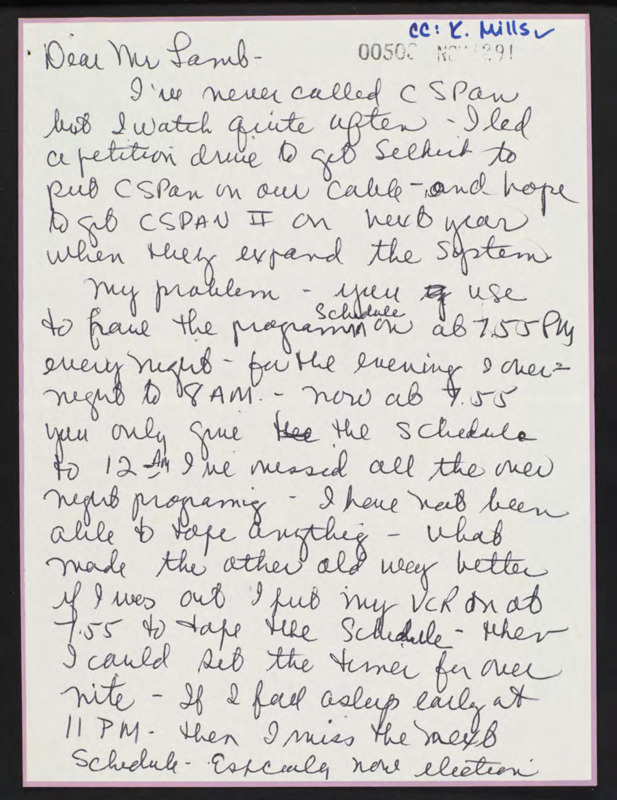 cc: K. Mills
Dear Mr Lamb-
I've never called C SPan
but I watch quite often - I led
a petition drive to get Selkirk to
put C SPan on our cable - and hope
to get CSPAN II on next year
when they expand the System
My problem - you use
to have the program Schedule on at 7.55 PM
every night - for the evening & over=
night to 8 AM. - now at 7.55
you only give the schedule
to 12 AM I've missed all the over
night programig - I have not been
able to tape anythig - what
made the other old way better
if I was out I put my VCR on at
7.55 to tape the Schedule - then
I could set the timer for over
nite - If I fall asleep early at
11 PM - then I miss the next
Schedule - Especially now election